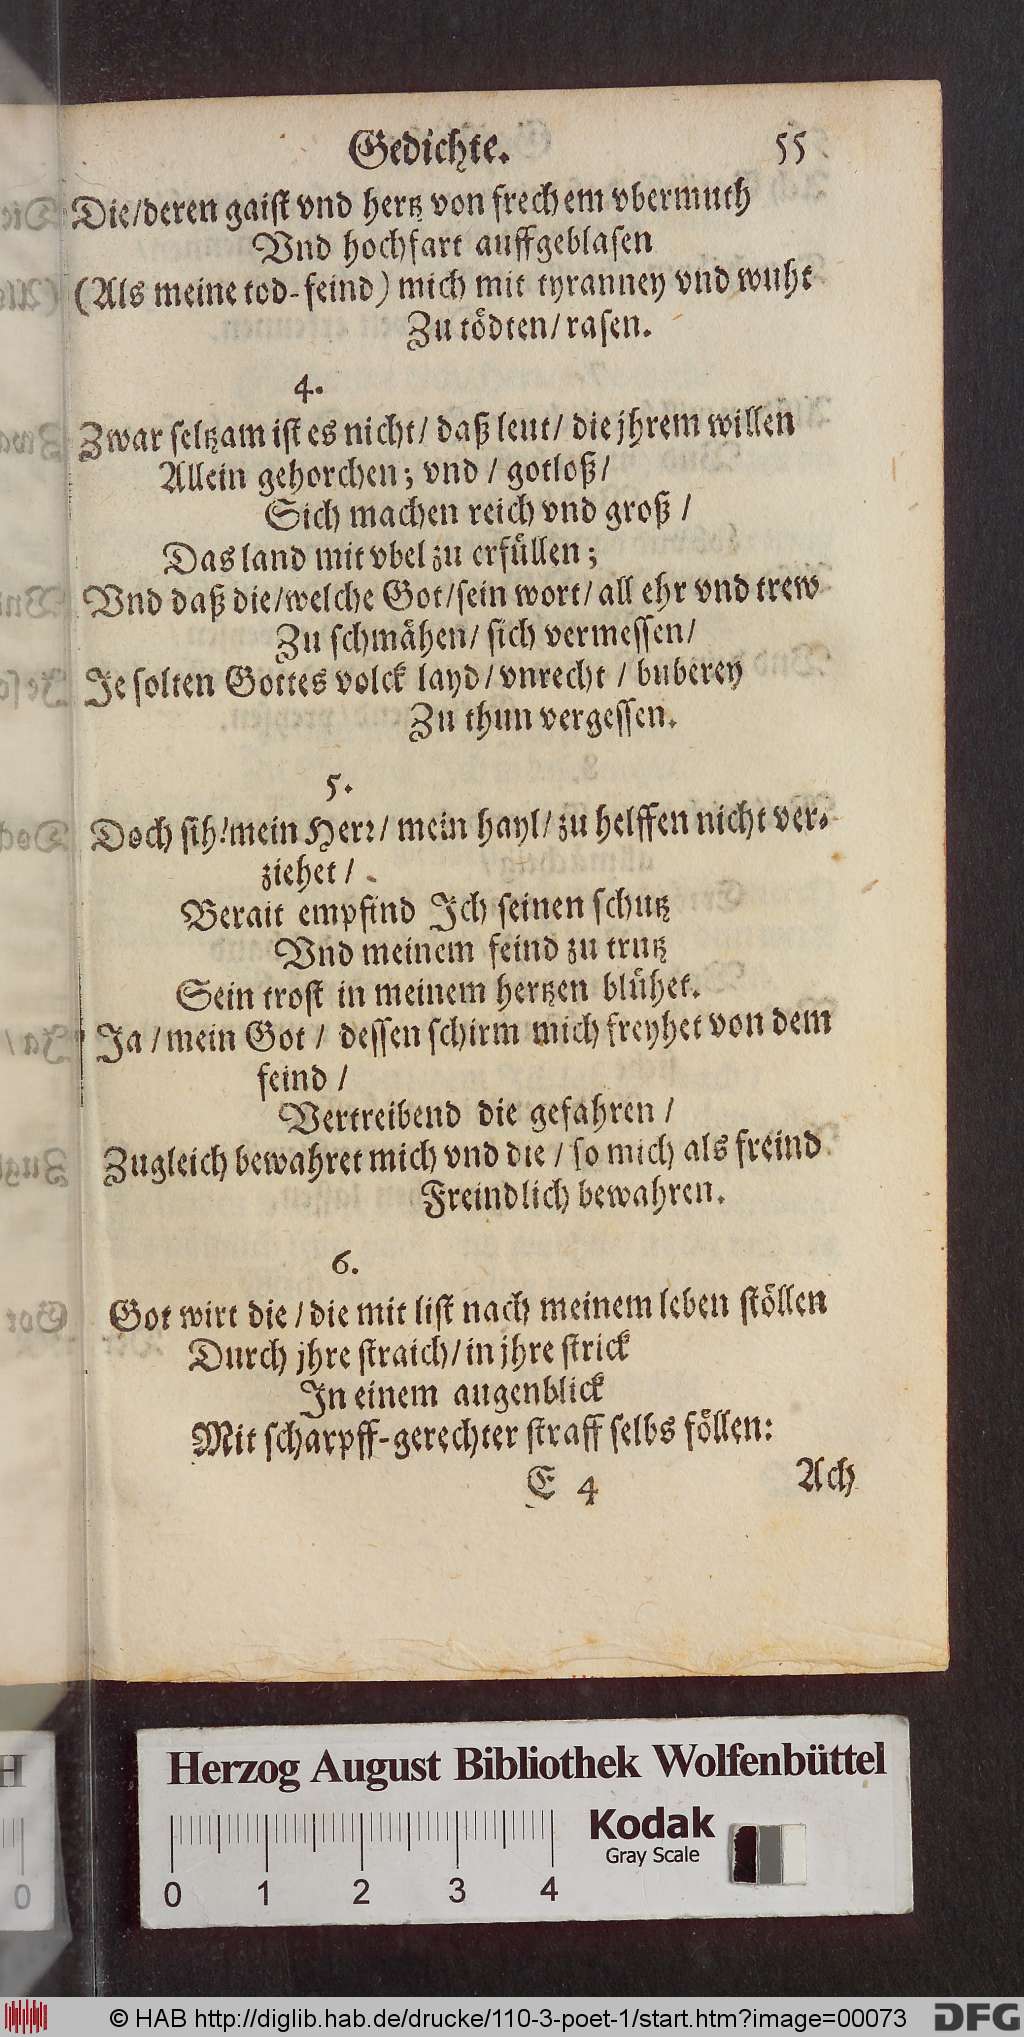 Gedichte. 55
Die/deren gaist vnd hertz von frechem vbermuth
Vnd hochfart auffgeblasen
(Als meine tod-feind) mich mit tyranney vnd wuht
Zu tödten/ rasen.
4.
Zwar seltzam ist es nicht/ daß leut/ die jhrem willen
Allein gehorchen; vnd / gotloß/
Sich machen reich vnd groß /
Das land mit vbel zu erfüllen;
Vnd daß die/welche Got/sein wort/ all ehr vnd trew
Zu schmähen/ sich vermessen/
Je solten Gottes volck layd/ vnrecht / buberey
Zu thun vergessen.
5.
Doch sih! mein Herr/ mein hayl/ zu helffen nicht ver-
ziehet /
Berait empfind Jch seinen schutz
Vnd meinem feind zu trutz
Sein trost in meinem hertzen blühet.
Ja / mein Got / dessen schirm mich freyhet von dem
feind /
Vertreibend die gefahren /
Zugleich bewahret mich vnd die / so mich als freind
Freindlich bewahren.
6.
Got wirt die / die mit list nach meinem leben stöllen
Durch jhre straich/ in jhre strick
Jn einem augenblick
Mit scharpff-gerechter straff selbs föllen:
E 4 Ach
Herzog August Bibliothek Wolfenbüttel
Kodak
Gray Scale
0 1 2 3 4
© HAB http://diglib.hab.de/drucke/110-3-poet-1/start.htm?image=00073 DFG